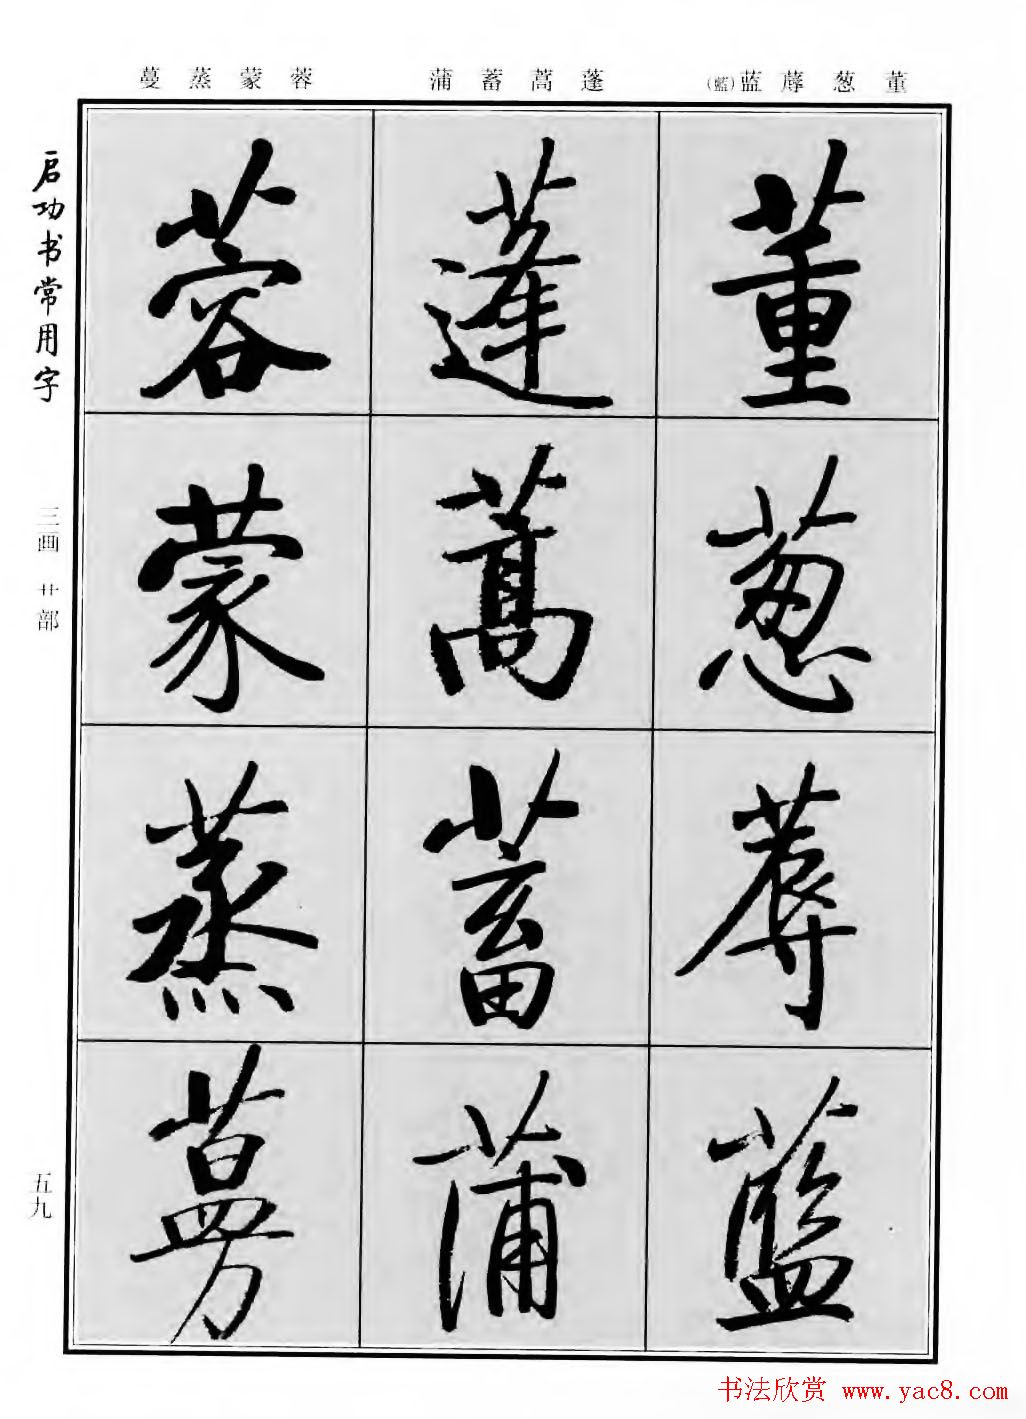 董 葱 蓐 蓝(藍)
蓬 蒿 蓄 蒲
蓉 蒙 蒸 蔓
董
葱
蓐
藍
蓬
蒿
蓄
蒲
蓉
蒙
蒸
蔓
启功书常用字
三画 艹部
五九
书法欣赏 www.yac8.com